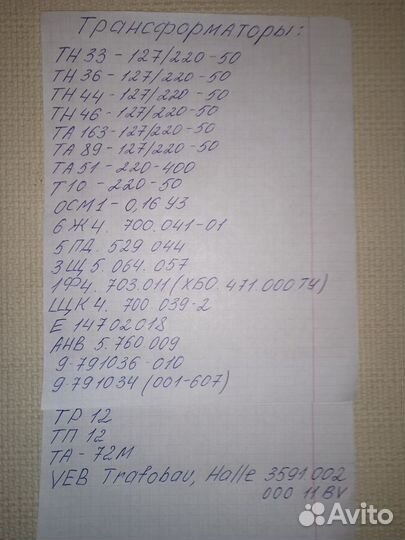 Трансформаторы:
ТН 33 - 127/220 - 50
ТН 36 - 127/220 - 50
ТН 44 - 127/220 - 50
ТН 46 - 127/220 - 50
ТА 163 - 127/220 - 50
ТА 89 - 127/220 - 50
ТА 51 - 220 - 400
Т10 - 220 - 50
ОСМ1 - 0,16 У3
6Ж4. 700.041-01
5ПД. 529.044
3Щ5. 064.057
1Ф4. 703.011 (ХБ0. 471.000ТУ)
ЩК4. 700 039-2
Е 14702018
АНВ 5.760.009
9-791036-010
9-791034 (001-607)
ТР 12
ТП 12
ТА - 72М
VEB Trafobau, Halle 3591.002
000 11 BV
Avito